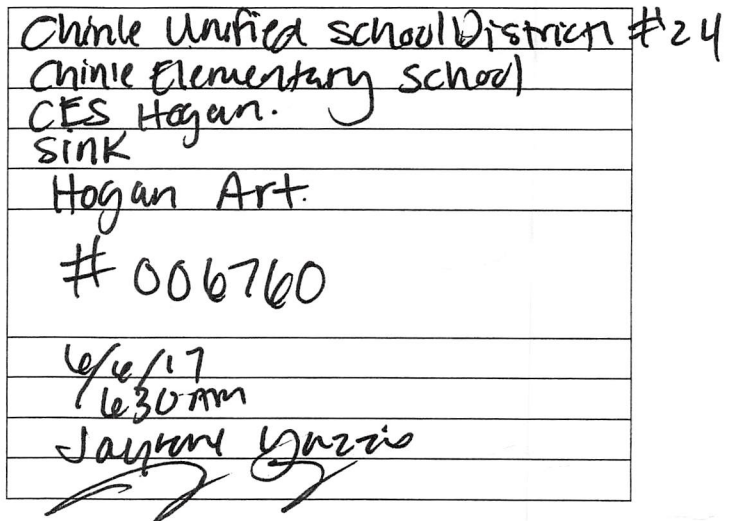 Chinle Unified School District #24
Chinle Elementary School
CES Hogan.
Sink
Hogan Art.
# 006760
6/6/17
630 AM
Yazzie